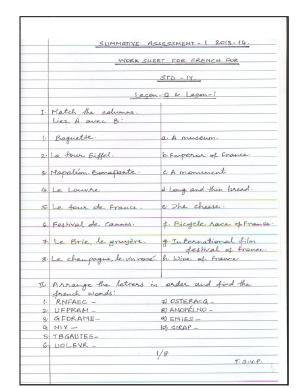 SUMMATIVE ASSESSMENT - I 2013-14
WORK SHEET FOR FRENCH FOR
STD - IV
Leçon-0 & Leçon-1
I. Match the columns.
Liez A avec B:
1. Baguette. a. A museum.
2. La tour Eiffel. b. Emperor of France
3. Napoléon Bonaparte. c. A monument
4. Le Louvre. d. Long and thin bread.
5. Le tour de France. e. The cheese.
6. Festival de Cannes. f. Bicycle race of France
7. Le Brie, le gruyère. g. International film
festival of France.
8. Le champagne, le vin rosé. h. Wine of France
II. Arrange the letters in order and find the
french words:
1. RNFAEC - 7) OSTERACQ -
2. UFPRAM - 8) ANOPÉLNO -
3. GFORAME - 9) EMIES -
4. NIV - 10) SIRAP -
5. TBGAUTES -
6. UOLEVR -
1/8
T.S.V.P.